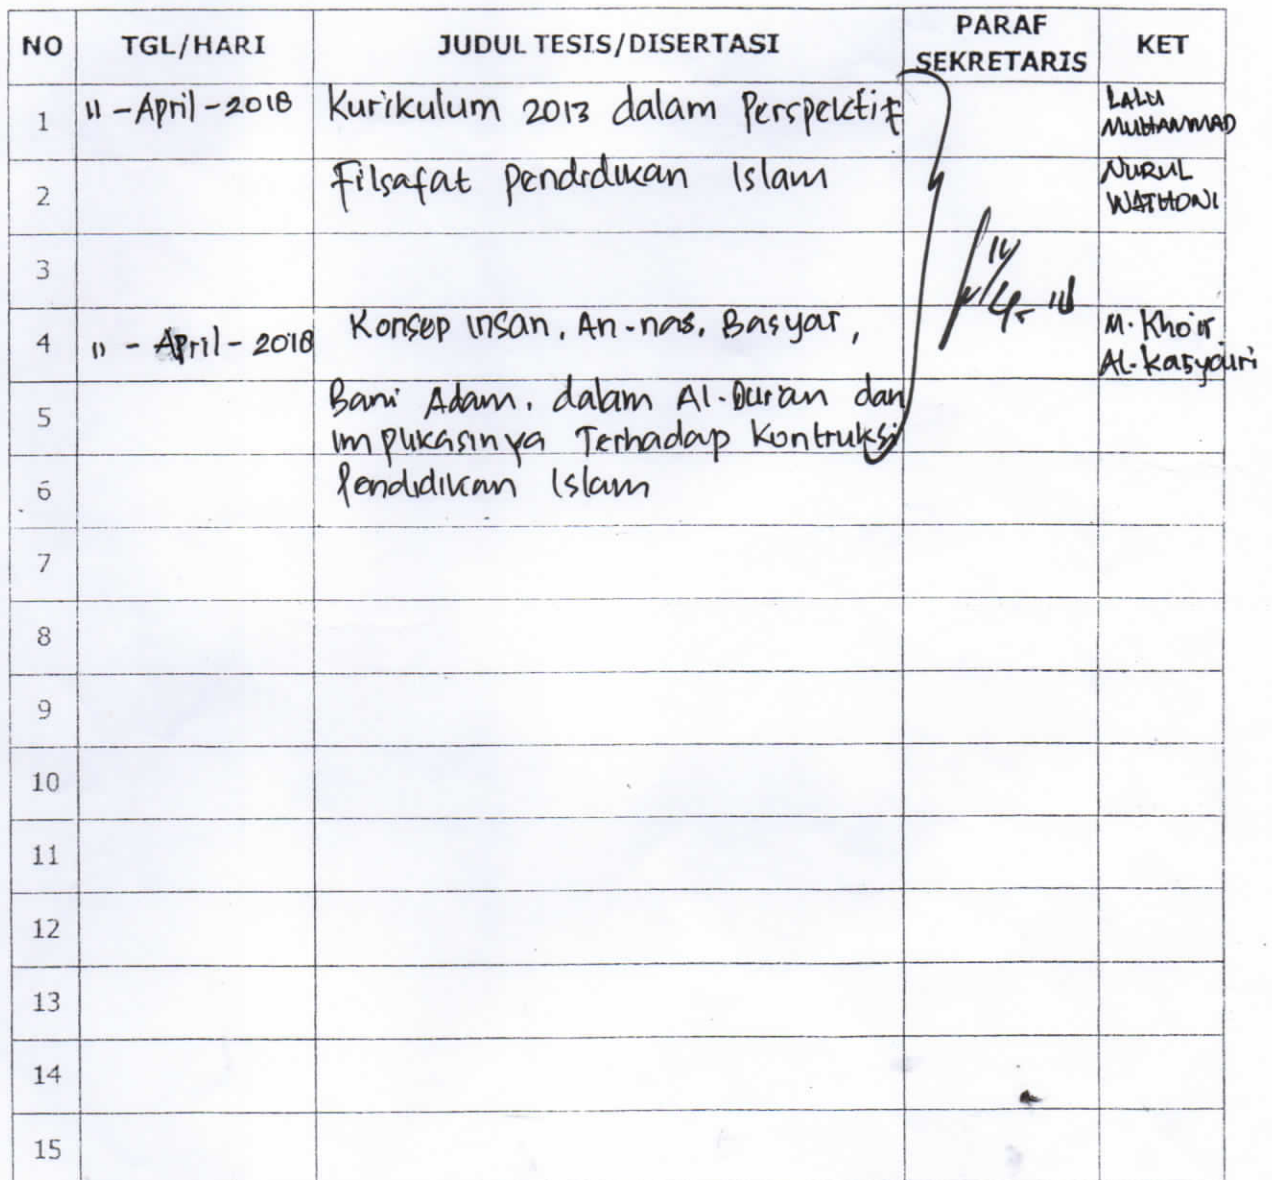 NO TGL/HARI JUDUL TESIS/DISERTASI PARAF SEKRETARIS KET
1 11 - April - 2018 Kurikulum 2013 dalam Perspektif LALU MUHAMMAD
2 Filsafat Pendidikan Islam NURUL WATHONI
3
4 11 - April - 2018 Konsep insan, An-nas, Basyar, M. Khoir Al-Kasyairi
5 Bani Adam, dalam Al-Quran dan
implikasinya Terhadap Kontruksi
6 Pendidikan Islam
7
8
9
10
11
12
13
14
15